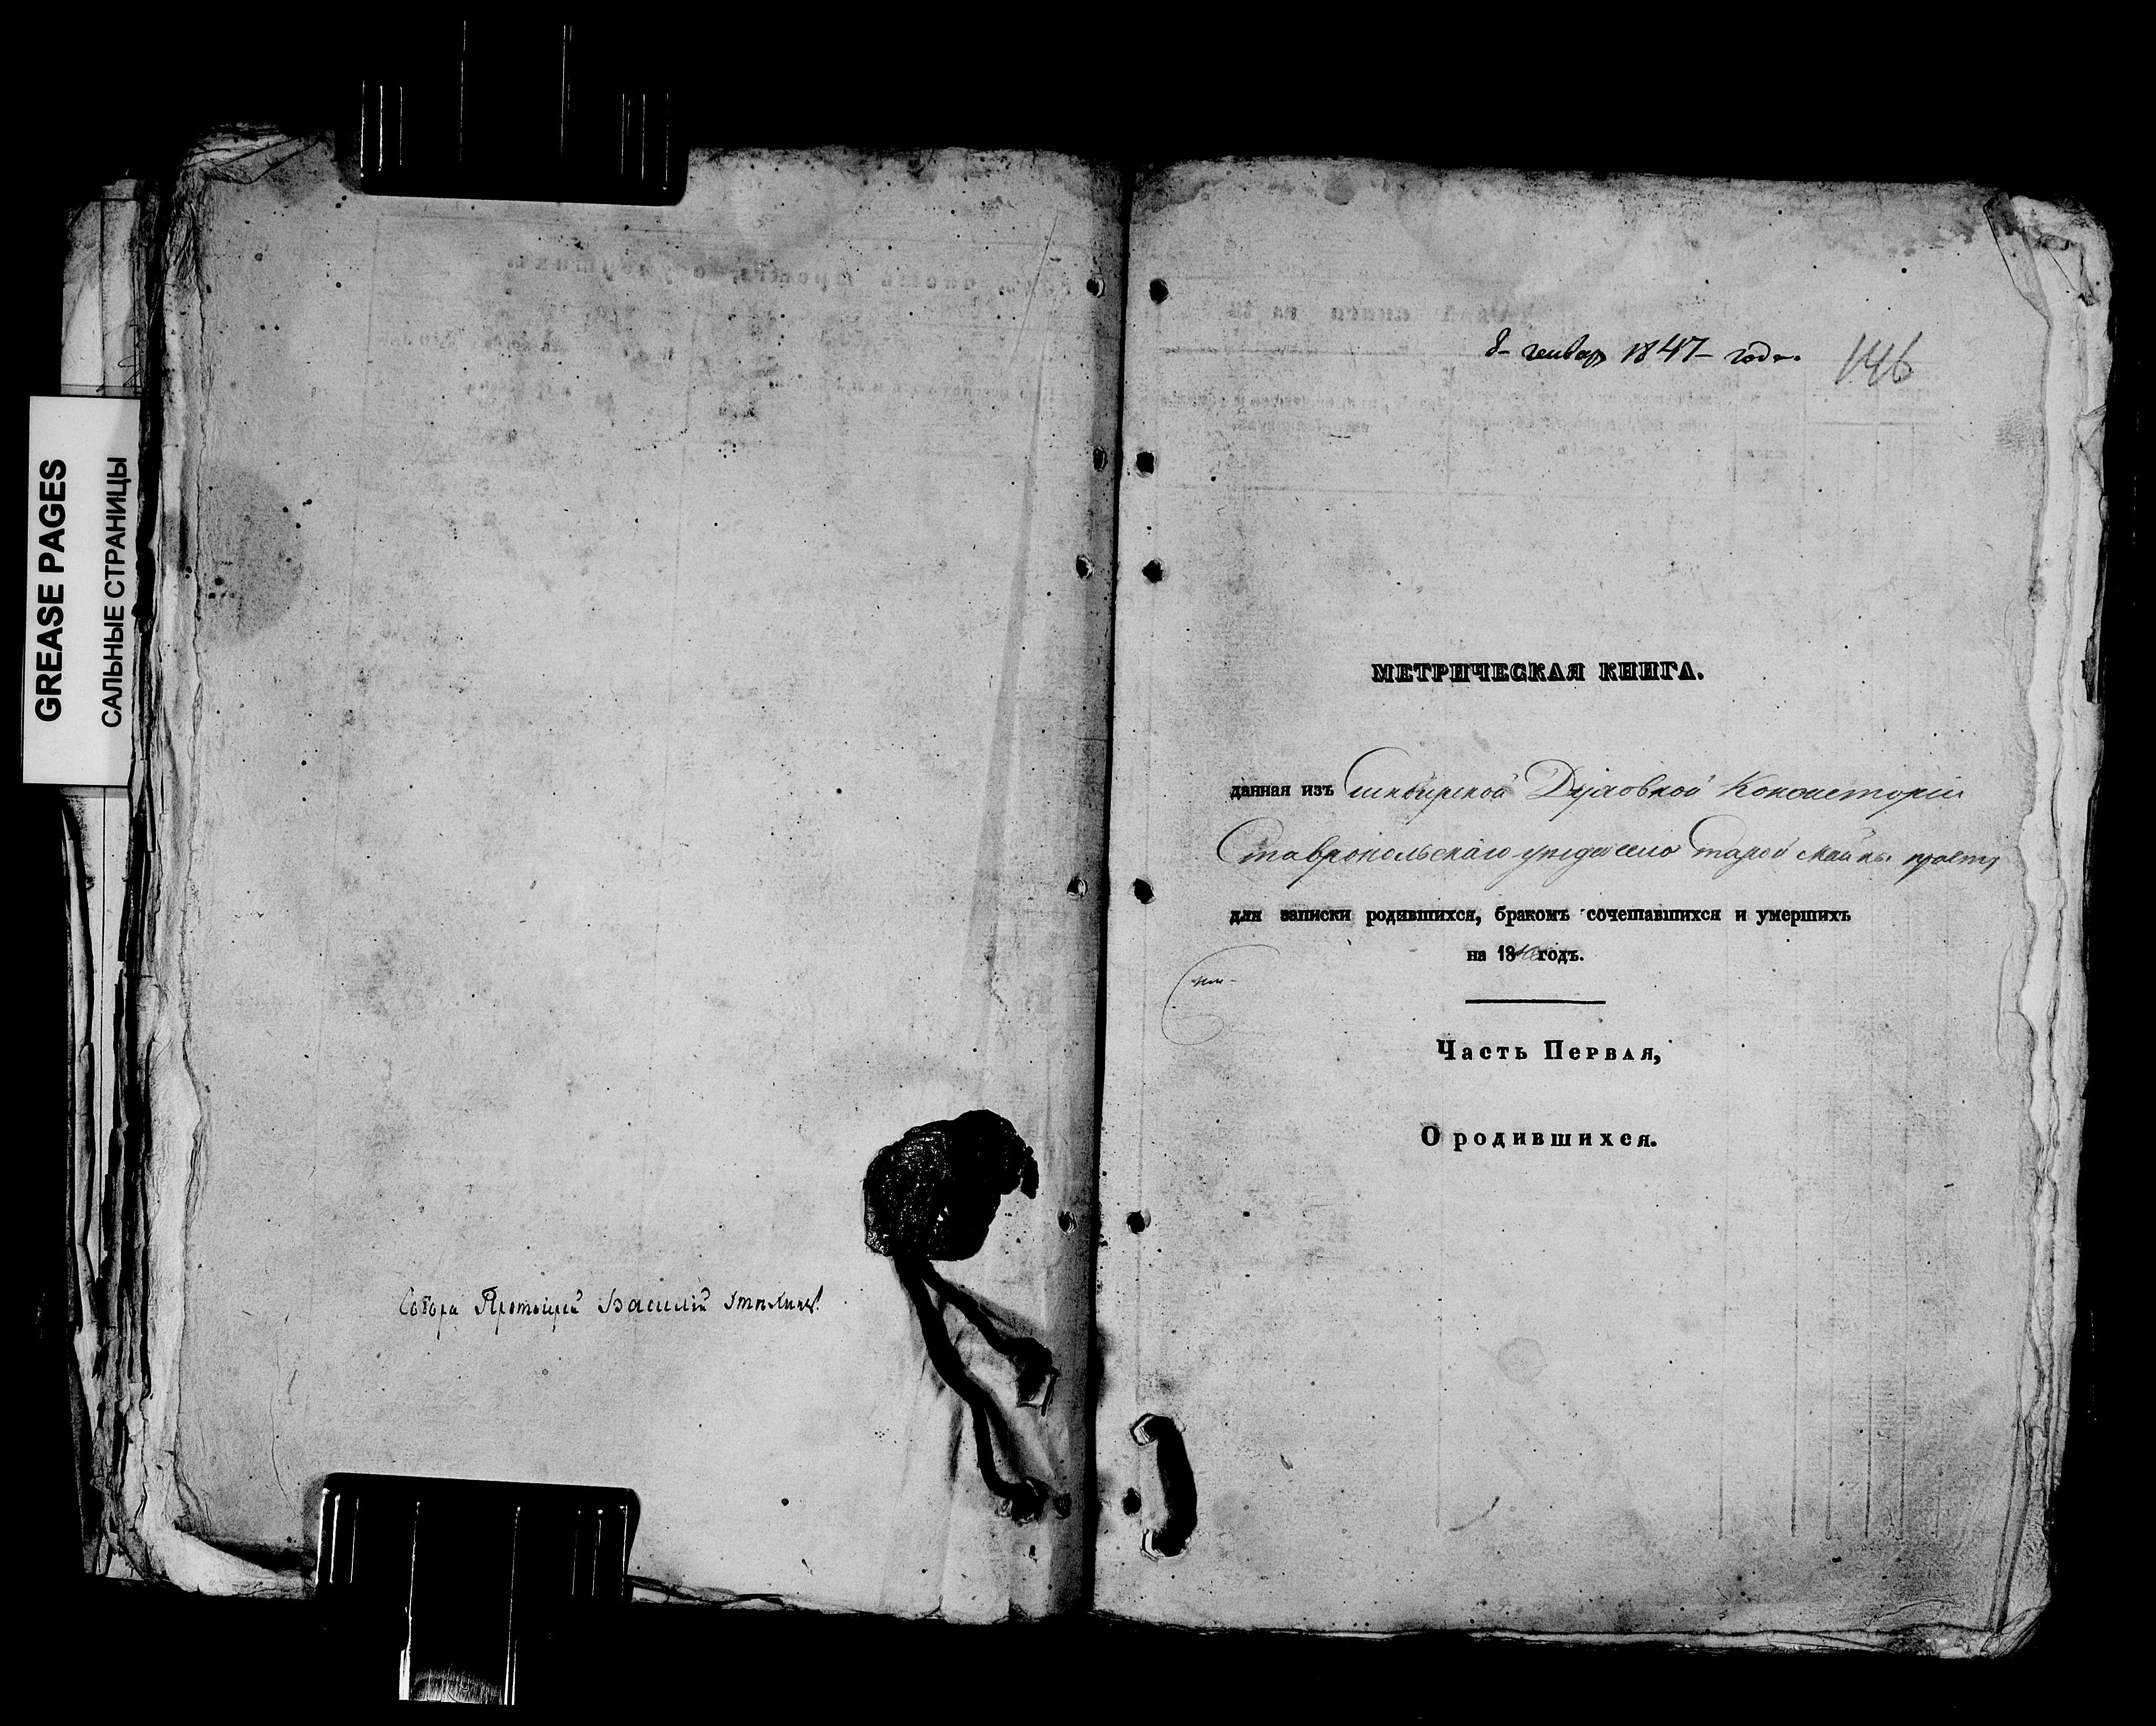 GREASE PAGES
САЛЬНЫЕ СТРАНИЦЫ
Собора Протоіерей Василій
8 генвар 1847 года.
146
МЕТРИЧЕСКАЯ КНИГА.
данная изъ Симбирской Духовной Консисторіи
Ставропольскаго уезда села Старой Майны
для записки родившихся, бракомъ сочетавшихся и умершихъ
на 18 годъ.
Часть Первая,
О родившихся.